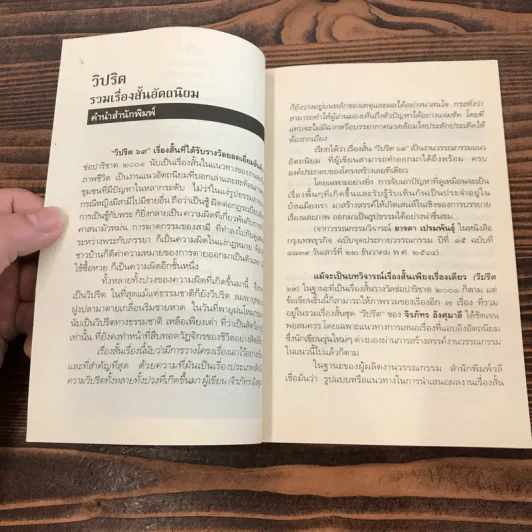 วิปริต
รวมเรื่องสั้นอัตถนิยม
คำนำสำนักพิมพ์
"วิปริต ๖๙" เรื่องสั้นที่ได้รับรางวัลยอดเยี่ยม
ช่อปาริชาต ๒๐๐๑ นับเป็นเรื่องสั้นในแนวทางของงาน
ภาพชีวิต เป็นงานแนวอัตถนิยมที่บอกเล่าและสะท้อน
ชุมชนที่มีปัญหาในหลากระดับ ไม่ว่าในแง่รูปธรรม
กรณีหญิงมีสามีไปมีชายอื่น ถือว่าเป็นชู้ ผิดต่อกฎระเบียบ
การเป็นชู้กับพระ ก็ยิ่งกลายเป็นความผิดที่เกี่ยวพันกับ
ศาสนามัวหม่น การฆาตกรรมของสามี ที่ทำลงไปกับคู่
ระหว่างพระกับภรรยา ก็เป็นความผิดในแง่กฎหมาย
ชาวบ้านก็ตีค่าความหมายของการตายออกมาเป็นตัวเลข
ใช้ซื้อหวย ก็เป็นความผิดอีกชั้นหนึ่ง
ทั้งหลายทั้งปวงของความผิดที่เกิดขึ้นมานี้ จึง
เป็นวิปริต ในที่สุดแม้แต่ธรรมชาติก็ยังวิปริต ลมพายุ
ฝูงปลามาตายเกลื่อนริมชายหาด ในวันที่พายุฝนโหม
นับเป็นวิปริตทางธรรมชาติ เหลือเพียงเต่า ที่ว่าเป็นสัตว์
เท่านั้น ที่ยังคงทำหน้าที่สืบทอดวัฏจักรของชีวิตอย่าง
เรื่องสั้นเรื่องนี้นับว่ามีการวางโครงเรื่องเอาไว้อย่าง
และที่สำคัญที่สุด ด้วยความที่มันเป็นเรื่องประเภท
ความวิปริตทั้งหลายทั้งปวงที่เกิดขึ้นมา ผู้เขียน (จิรภัทร
ก็ยังวางอยู่บนหลักของเหตุและผลได้อย่างน่าสนใจ กระทั่งว่า
สามารถทำให้ผู้อ่านมองเห็นถึงตัวปัญหาได้อย่างแจ่มชัด โดยที่
แทบจะไม่มีฉากหรือบรรยากาศแวดล้อมใดประดักประเดิดให้
ต้องถกเถียง
เรียกได้ว่า เรื่องสั้น "วิปริต ๖๙" เป็นงานวรรณกรรมแนว
อัตถนิยม ที่ผู้เขียนสามารถทำออกมาได้ถึงพร้อม ครบ
องค์ประกอบของโครงสร้างเลยทีเดียว
โดยเฉพาะอย่างยิ่ง การจับเอาปัญหาที่ดูเหมือนจะเป็น
เรื่องพื้นๆที่เกิดขึ้นและรับรู้รับเห็นกันเป็นประจำอยู่ใน
บ้านเมืองเรา มาสร้างสรรค์ให้เกิดเสน่ห์ในเชิงของการบรรยาย
เรื่องและภาพ ออกมาเป็นรูปธรรมได้อย่างน่าชื่นชม...
(จากวรรณกรรมวิจารณ์ อารดา เปรมพันธุ์ ในหนังสือ
กรุงเทพธุรกิจ ฉบับจุดประกายวรรณกรรม ปีที่ ๑๕ ฉบับที่
วันเสาร์ที่ ๒๒ ธันวาคม พ.ศ. ๒๕๔๔)
แม้จะเป็นบทวิจารณ์เรื่องสั้นเพียงเรื่องเดียว (วิปริต
๖๙) ในฐานะที่เป็นเรื่องสั้นรางวัลช่อปาริชาต ๒๐๐๑ ก็ตาม แต่
ข้อเขียนชิ้นนี้ก็สามารถให้ภาพรวมของเรื่องอีก ๗ เรื่อง ที่รวม
อยู่ในรวมเรื่องสั้นชุด "วิปริต" ของ จิรภัทร อังศุมาลี ได้ชัดเจน
พอสมควร โดยเฉพาะแนวทางการเสนอเรื่องที่แอบอิงอัตถนิยม
ซึ่งนักเขียนรุ่นใหม่ๆ ต่างมองผ่านการสร้างสรรค์งานวรรณกรรม
ในแนวนี้ไปแล้วก็ตาม
ในฐานะของผู้ผลิตงานวรรณกรรม สำนักพิมพ์วลี
เชื่อมั่นว่า รูปแบบหรือแนวทางในการนำเสนอผลงานเรื่องสั้น